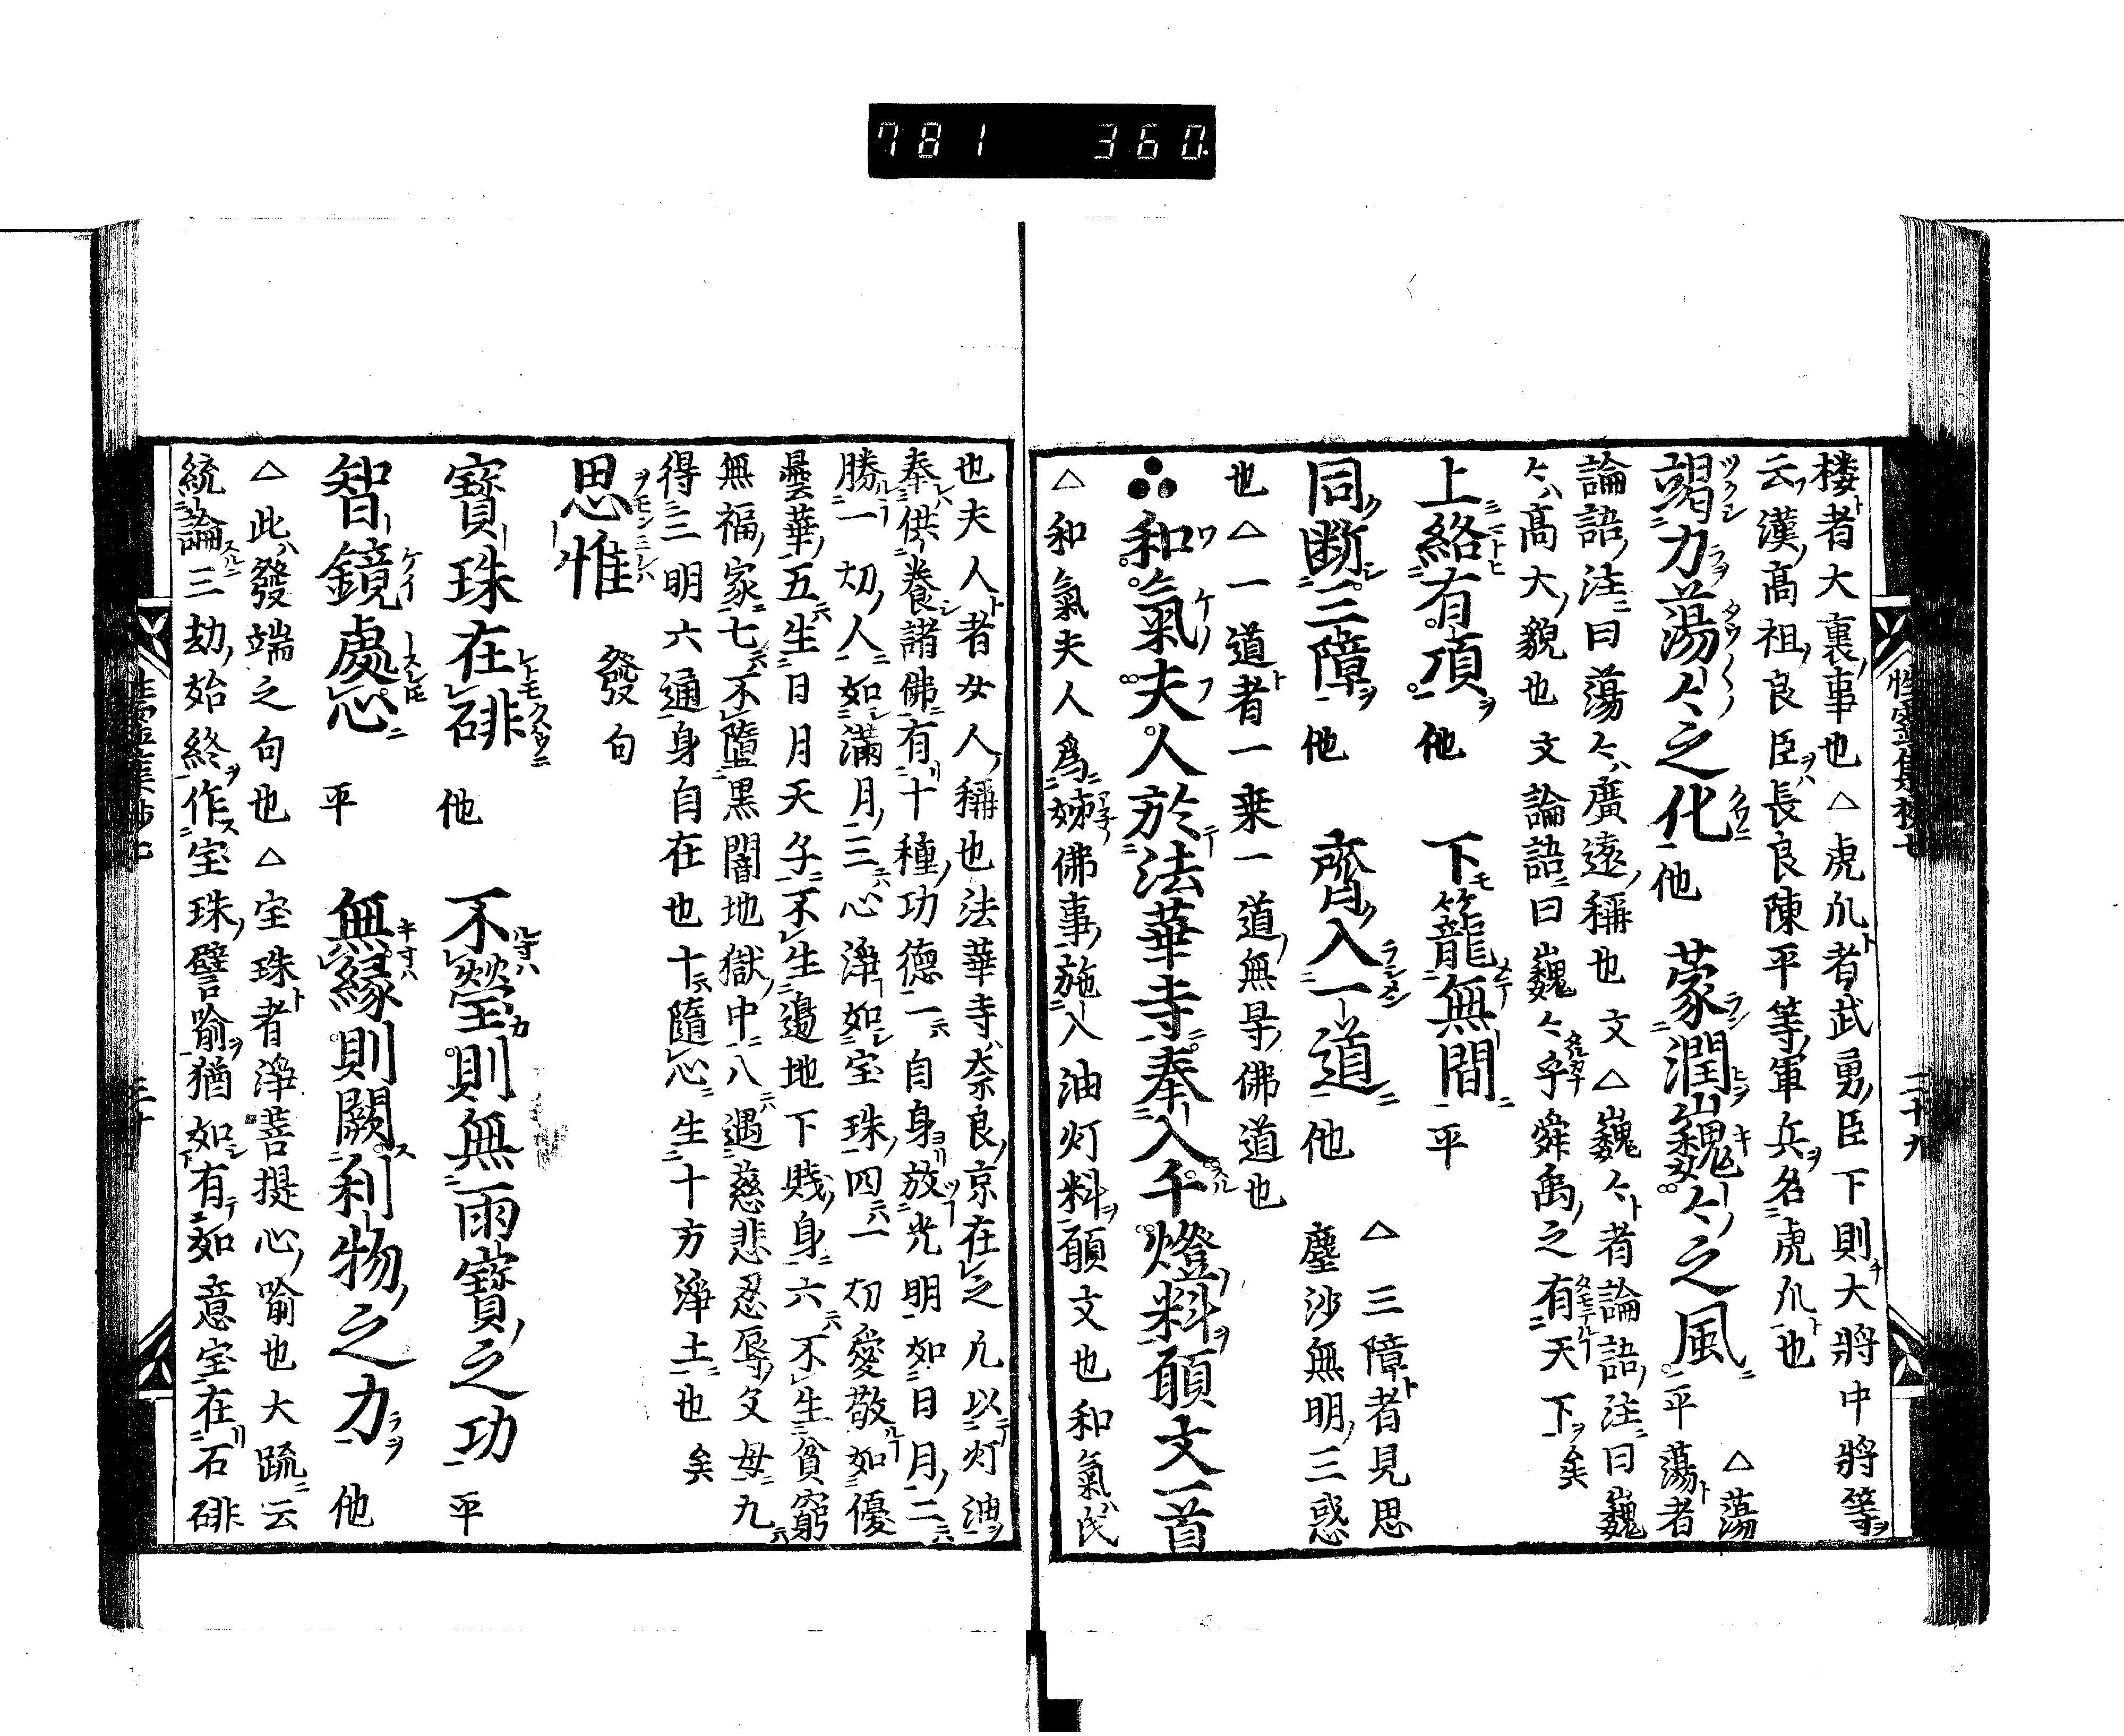 781 360
楼者大裏事也△虎爪者武勇臣下則大将中将等
云漢高祖良臣長良陳平等軍兵名虎爪也
竭力蕩々之化 他 蒙潤巍々之風 平 △蕩
蕩者
論語注曰蕩々廣遠稱也文△巍々者論語注曰巍
々高大貌也文論語曰巍々乎舜禹之有天下矣
上絡有頂 他 下籠無間 平
同断三障 他 齊入一道 他 △三障者見思
塵沙無明三惑
也△一道者一乗一道無㝵佛道也
和氣夫人於法華寺奉入千燈料願文一首
△和氣夫人爲姊佛事施入油灯料願文也和氣氏
也夫人者女人稱也法華寺奈良京在之凡以灯油
奉供養諸佛有十種功德一自身放光明如日月二
勝一切人如滿月三心淨如宝珠四一切愛敬如優
曇華五生日月天子不生邊地下賎身六不生貧窮
無福家七不墮黒闇地獄中八遇慈悲忍辱父母九
得三明六通身自在也十隨心生十方淨土也矣
思惟 發句
寶珠在碏 他 不瑩則無雨寶之功 平
智鏡處心 平 無緣則闕利物之力 他
△此發端之句也△宝珠者淨菩提心喻也大䟽云
統論三劫始終作宝珠譬喻猶如有如意宝在石碏